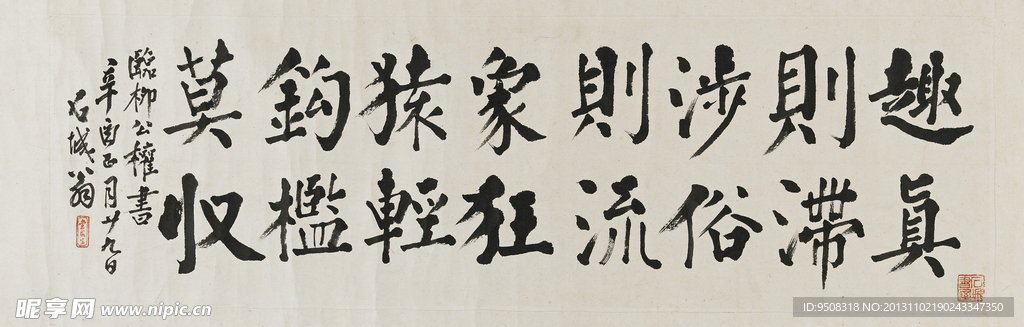 趣真
則滯
涉俗
則流
象狂
猿輕
鈎檻
莫収
臨柳公權書
辛酉正月廿九日
石城翁
昵享网 www.nipic.cn
ID:9508318 NO:20131102190243347350